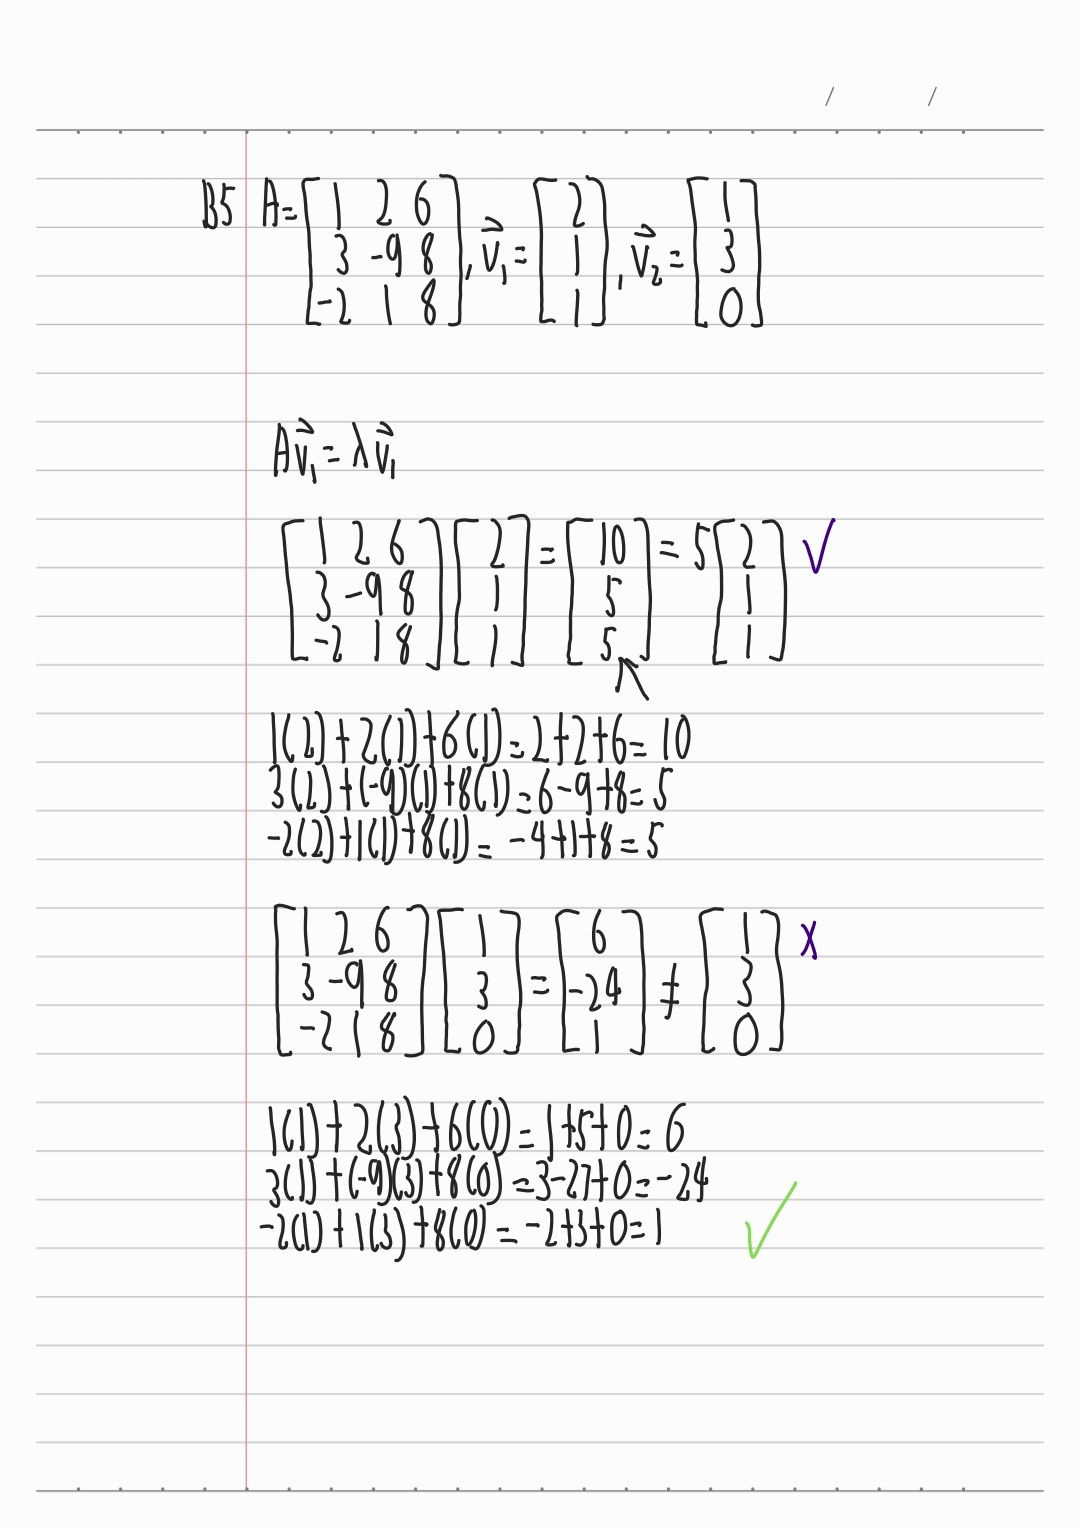 / /
B5 A = [1 2 6; 3 -9 8; -2 1 8], v⃗₁ = [2; 1; 1], v⃗₂ = [1; 3; 0]
Av⃗₁ = λv⃗₁
[1 2 6; 3 -9 8; -2 1 8] [2; 1; 1] = [10; 5; 5] = 5 [2; 1; 1] ✓
1(2) + 2(1) + 6(1) = 2 + 2 + 6 = 10
3(2) + (-9)(1) + 8(1) = 6 - 9 + 8 = 5
-2(2) + 1(1) + 8(1) = -4 + 1 + 8 = 5
[1 2 6; 3 -9 8; -2 1 8] [1; 3; 0] = [6; -24; 1] ≠ [1; 3; 0] X
1(1) + 2(3) + 6(0) = 1 + 5 + 0 = 6
3(1) + (-9)(3) + 8(0) = 3 - 27 + 0 = -24
-2(1) + 1(3) + 8(0) = -2 + 3 + 0 = 1 ✓